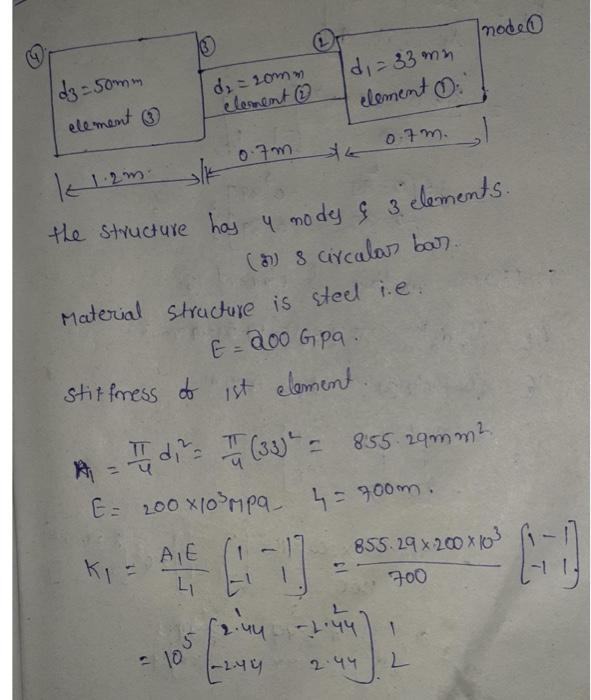 ④ ③ ② node①
d3=50mm d2=20mm d1=33mm
element ③ element ② element ①
1.2m 0.7m 0.7m.
the structure has 4 nodes & 3 elements.
(or) 3 circular bar.
Material structure is steel i.e.
E = 200 GPa.
Stiffness of 1st element.
A1 = π/4 d1² = π/4 (33)² = 855.29mm²
E = 200×10³MPa L1 = 700m.
K1 = A1E/L1 [1 -1 -1 1] = 855.29×200×10³/700 [1 -1 -1 1]
1 2
= 10⁵ [2.44 -2.44] 1
[-2.44 2.44] 2